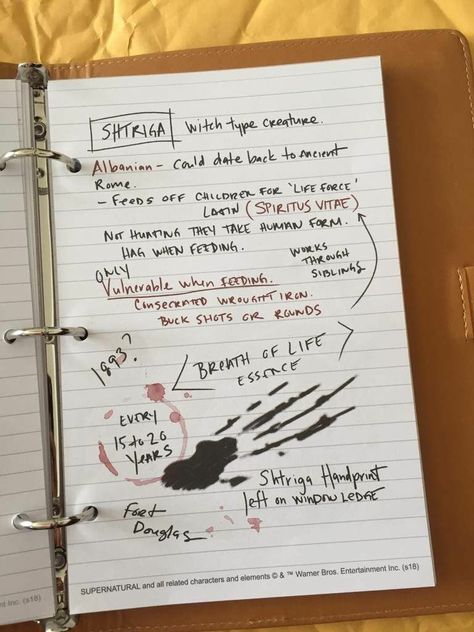 SHTRIGA witch type creature.
Albanian - could date back to Ancient
Rome.
- FEEDS OFF CHILDREN FOR 'LIFE FORCE'
LATIN (SPIRITUS VITAE)
NOT HUNTING THEY TAKE HUMAN FORM.
HAG WHEN FEEDING.
WORKS
THROUGH
SIBLINGS
ONLY
Vulnerable when FEEDING.
CONSECRATED WROUGHT IRON.
BUCK SHOTS OR ROUNDS
1893?
BREATH OF LIFE
ESSENCE
EVERY
15 to 20
YEARS
Shtriga Handprint
left on WINDOW LEDGE
Fort
Douglas
SUPERNATURAL and all related characters and elements © & ™ Warner Bros. Entertainment Inc. (s18)
nt Inc. (s18)